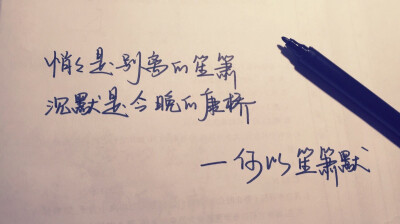 悄々是别离的笙箫
沉默是今晚的康桥
—何以笙箫默